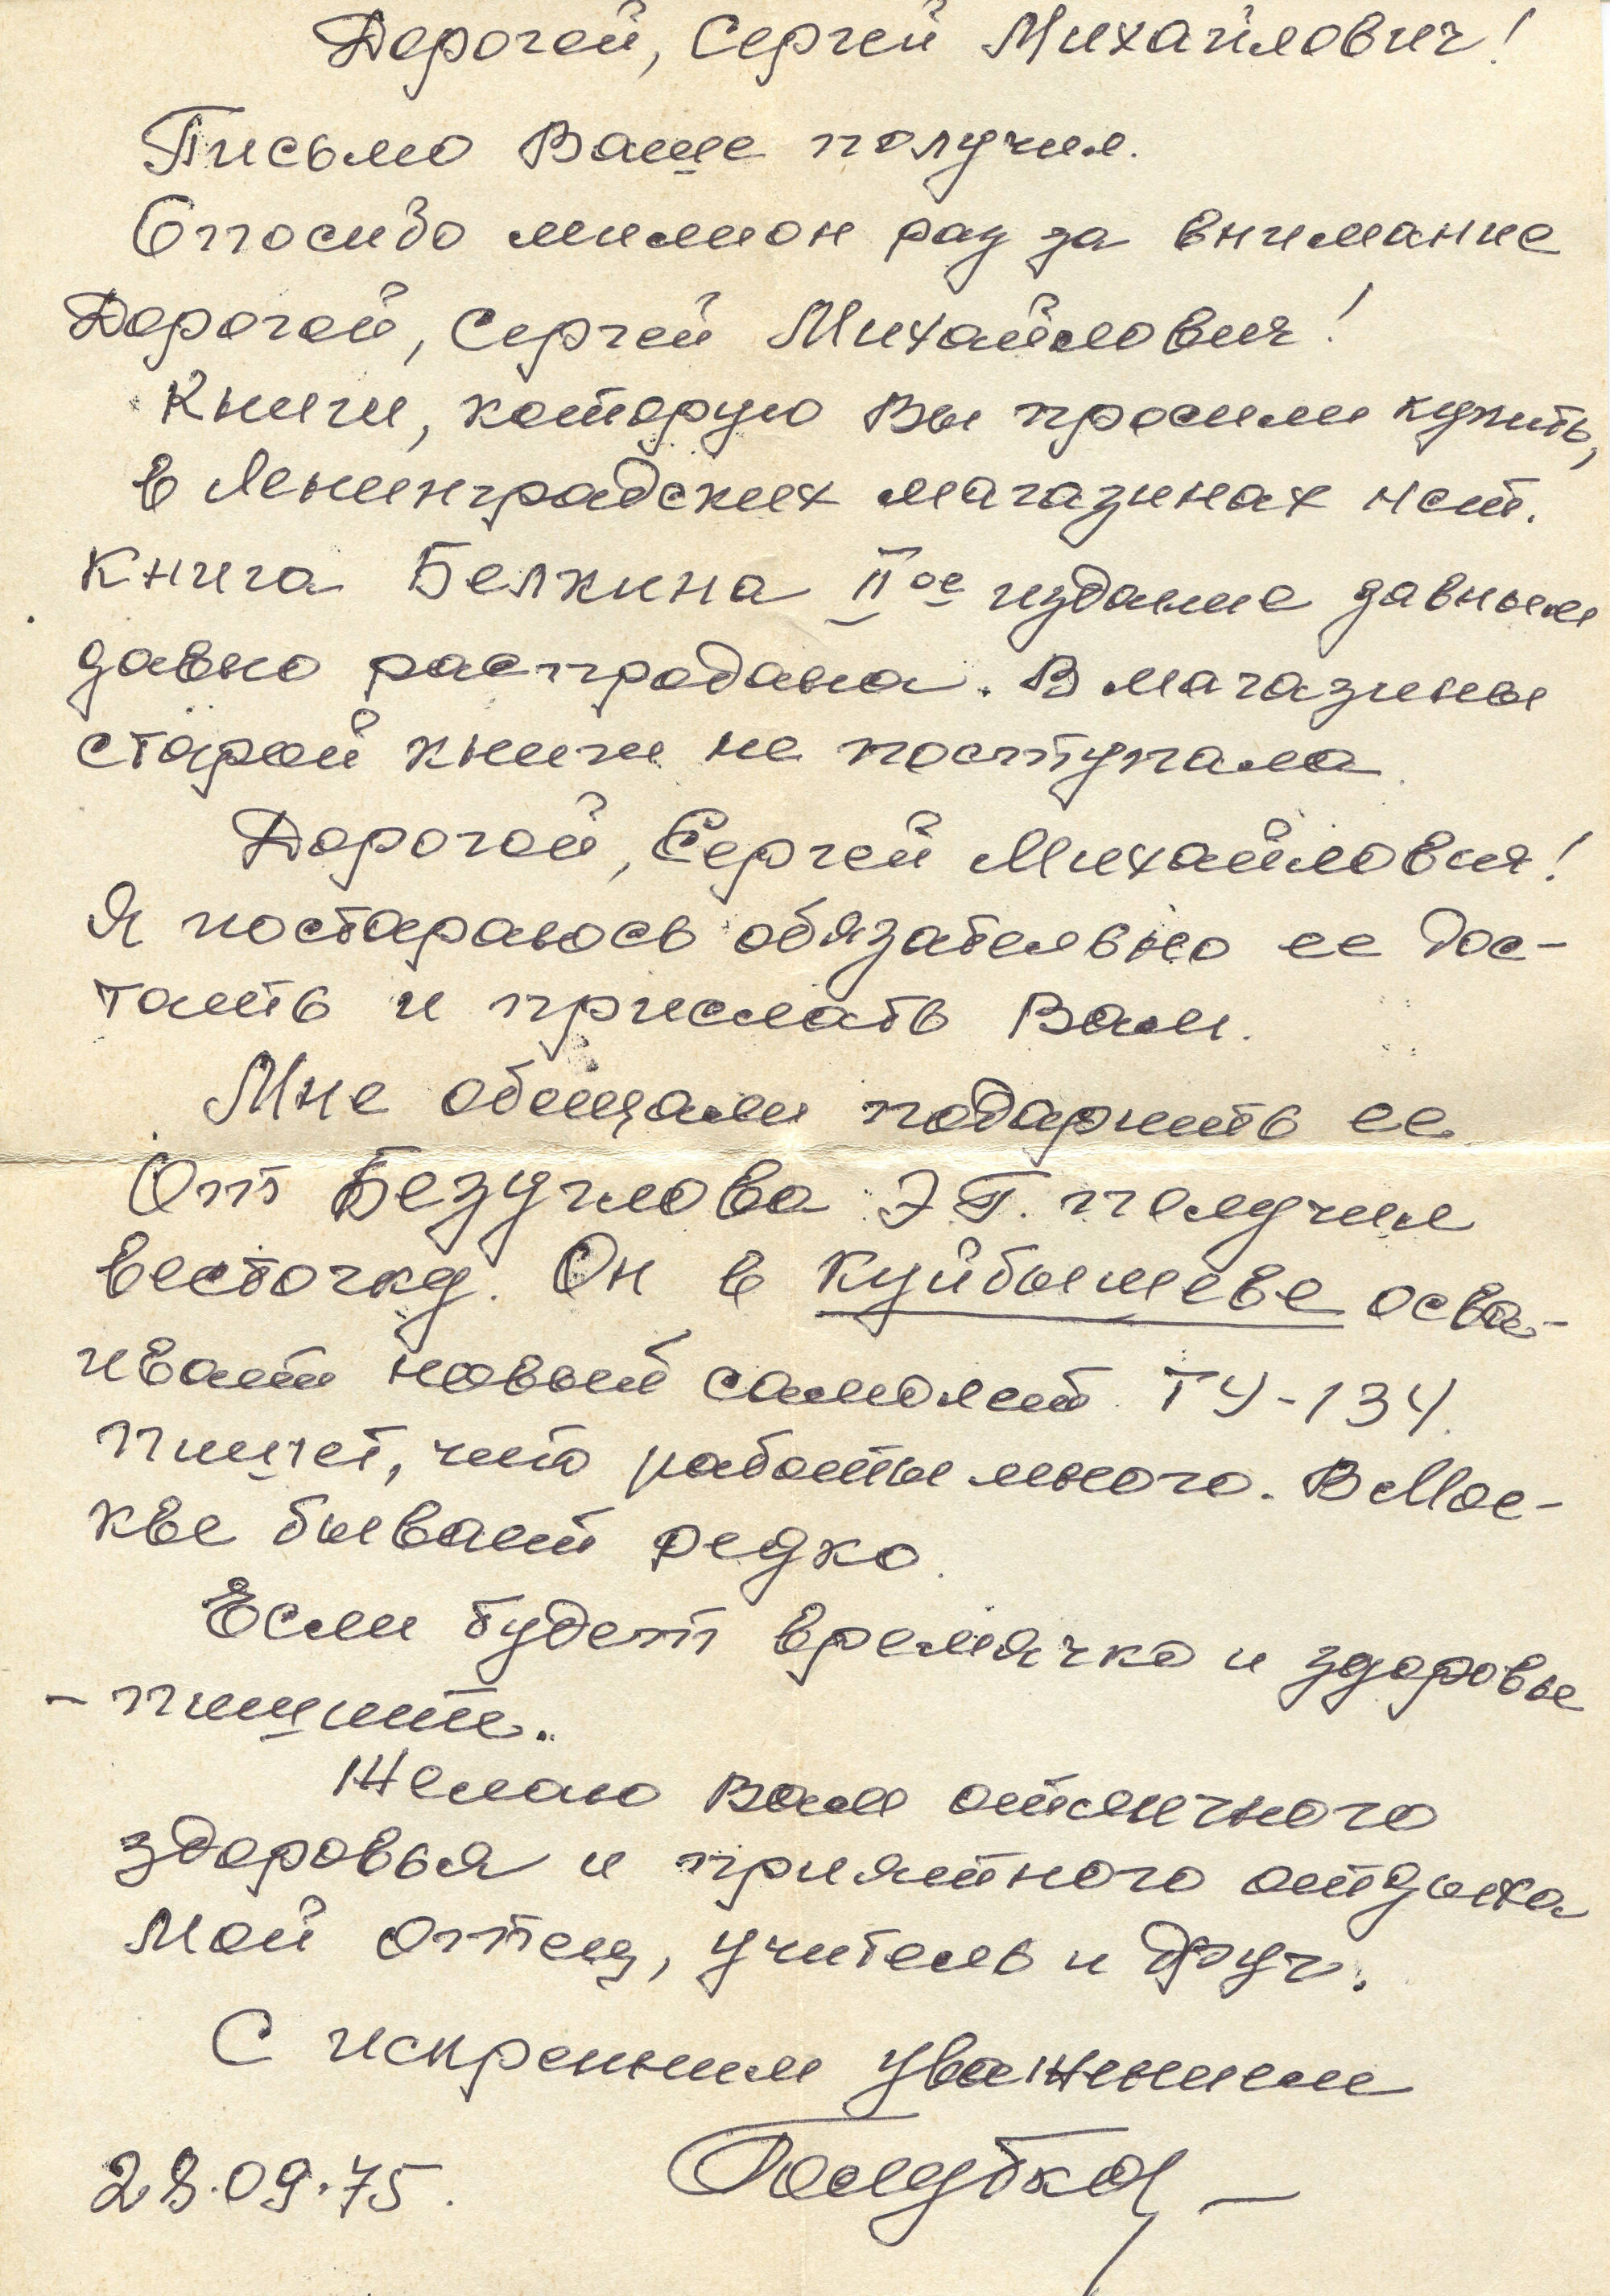 Дорогой, Сергей Михайлович!
Письмо Ваше получил.
Спосибо милион раз за внимание
Дорогой, Сергей Михайлович!
Книги, которую Вы просили купить,
в Ленинградских магазинах нет.
Книга Белкина II ое издание давным
давно распродана. В магазины
старой книги не поступала.
Дорогой, Сергей Михайлович!
Я постараюсь обязательно ее дос-
тать и прислать Вам.
Мне обещали подарить ее
От Безуглова Э Г. получил
весточку. Он в Куйбышеве осва-
ивает новый самолет ТУ-134.
пишет, что работы много. В Мос-
кве бывает редко.
Если будет времячко и здоровье
- пишите.
Желаю Вам отличного
здоровья и приятного отдыха
Мой отец, учитель и друг.
С искренним уважением
28.09.75. Голубков